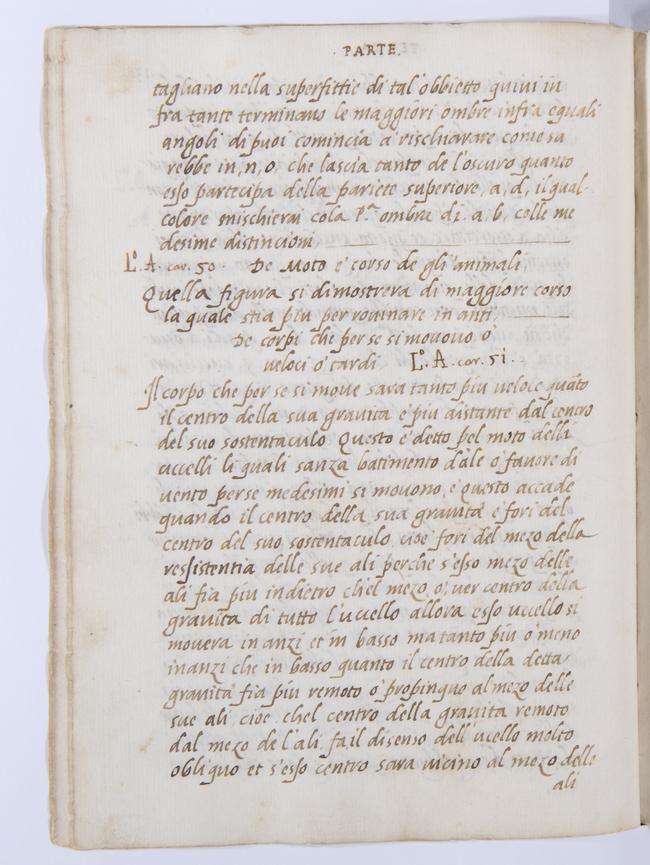 · PARTE ·
tagliano nella superfittie di tal' obbietto quivi in
fra tante terminano le maggiori ombre infra equali
angoli di puoi comincia a rischiarare come sa
rebbe in, n, o, che lascia tanto de l'oscuro quanto
esso partecipa della pariete superiore, a, d, il qual
colore mischierai cola p.ª ombra di. a. b. colle me
desime distincioni
L.º A. car. 50 · De Moto e corso de gli animali
Quella figura si dimostrera di maggiore corso
la quale stia piu per rovinare in anti
De corpi che per se si movovo o'
veloci o' tardi L.º A. car. 51 ·
Il corpo che per se si move sara tanto piu veloce quãto
il centro della sua gravita e piu distante dal centro
del suo sostentaculo Questo e' detto pel moto delli
uccelli li quali sanza batimento d'ale o' favore di
vento perse medesimi si movono, e questo accade
quando il centro della sua gravita e fori del
centro del suo sostentaculo cioe fori del mezo della
ressistentia delle sue ali perche s'esso mezo delle
ali fia piu indietro ch'el mezo o' ver centro della
gravita di tutto l'uccello allora esso uccello si
movera in anzi et in basso ma tanto piu o' meno
inanzi che in basso quanto il centro della detta
gravita fia piu remoto o' propinquo al mezo delle
sue ali cioe chel centro della gravita remoto
dal mezo de l'ali fa il disenso dell' ucello molto
obliquo et s'esso centro sara vicino al mezo delle
ali